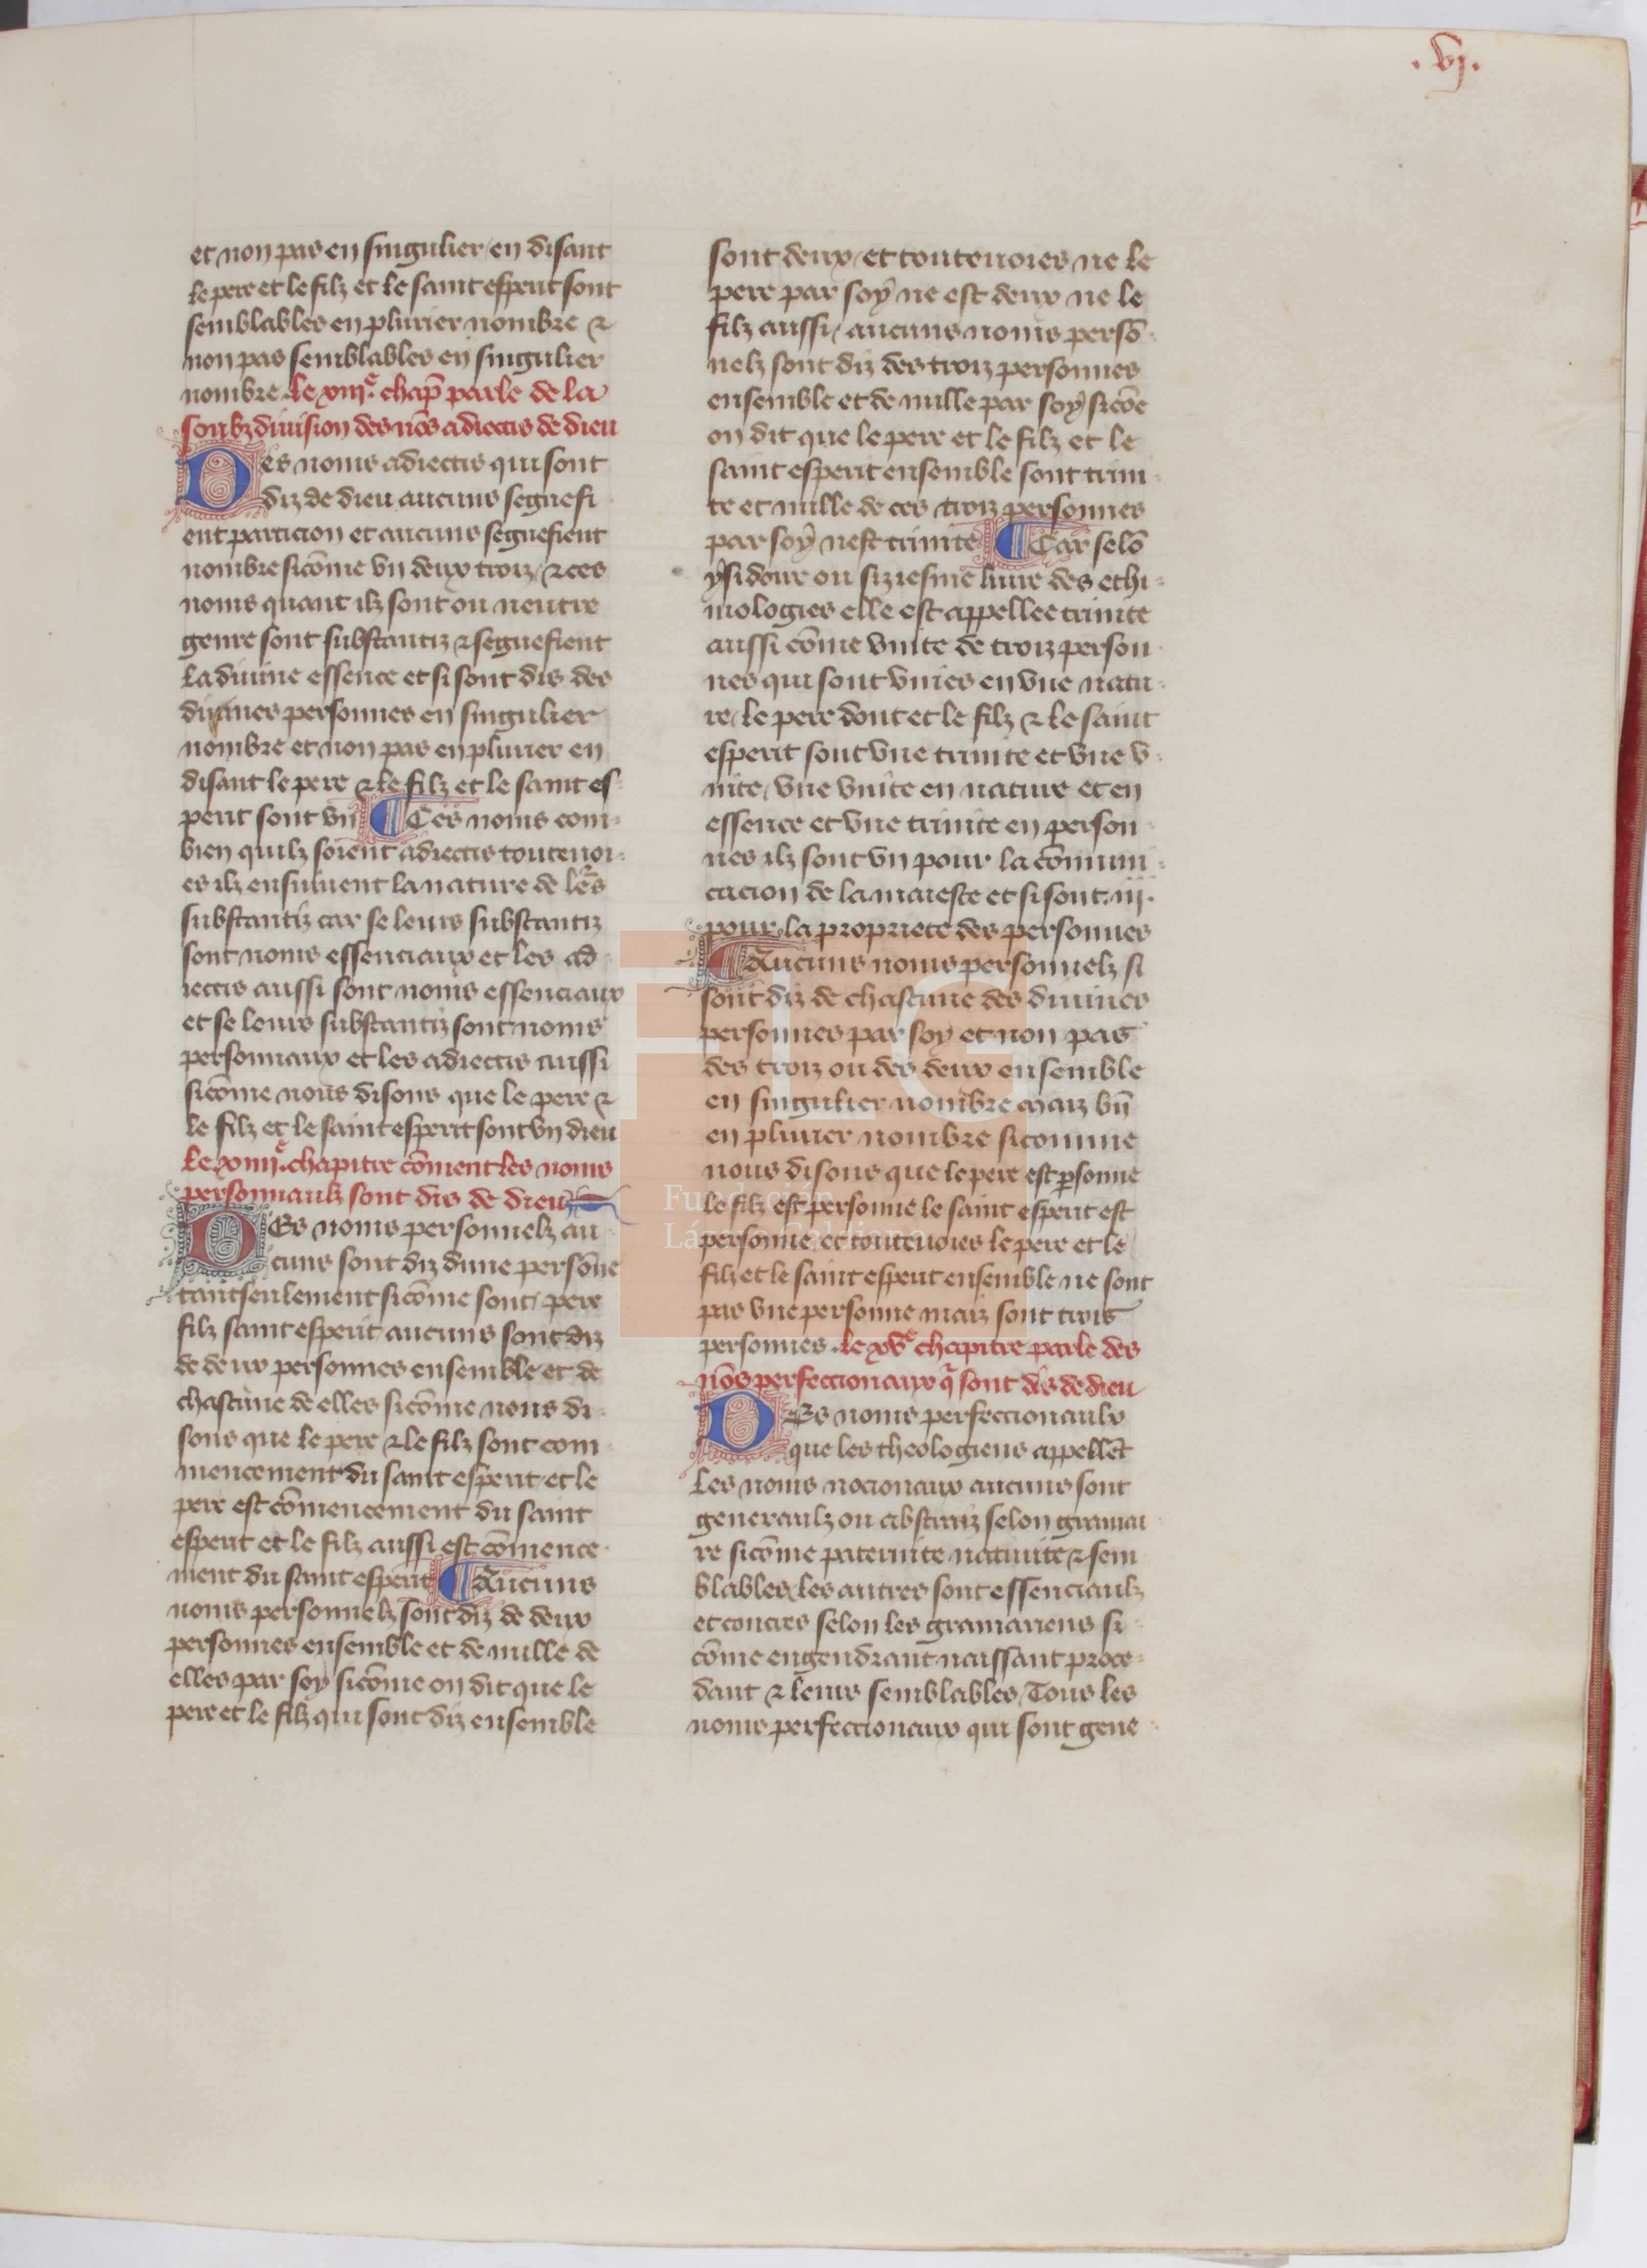 .vj.
et non pas en singulier en disant
le pere et le filz et le saint esperit sont
semblables en plurier nombre ⁊
non pas semblables en singulier
nombre. le xiii.e chap̄ parle de la
soubzdiuision des nōs adiectis de dieu
Des noms adiectis qui sont
diz de dieu aucuns seguefi
ent particion et aucuns seguefient
nombre sicōme vn deux troiz ⁊ ces
noms quant ilz sont ou neutre
genre sont substantiz ⁊ seguefient
la diuine essence et si sont dis des
diuines personnes en singulier
nombre et non pas en plurier en
disant le pere ⁊ le filz et le saint es
perit sont vn ¶ Ces noms com
bien quilz soient adiectis toutenoi
es ilz ensuiuent la nature de leˢ
substantiz car se leurs substantiz
sont noms essenciaux et les ad
iectis aussi sont noms essenciaux
et se leurs substantiz sont noms
personnaux et les adiectis aussi
sicōme nous disons que le pere ⁊
le filz et le saint esperit sont vn dieu
le xiiii.e chapitre cōment les noms
personnaulz sont dis de dieu
Des noms personnelz au
cuns sont diz dune persōne
tantseulement sicōme sont pere
filz saint esperit aucuns sont diz
de deux personnes ensemble et de
chascune de elles sicōme nous di
sons que le pere ⁊ le filz sont com
mencement du saint esperit et le
pere est cōmencement du saint
esperit et le filz aussi est cōmence
ment du saint esperit ¶ Aucuns
noms personnelz sont diz de deux
personnes ensemble et de nulle de
elles par soy sicōme on dit que le
pere et le filz qui sont diz ensemble
sont deux et toutenoies ne le
pere par soy ne est deux ne le
filz aussi aucuns noms persō
nelz sont diz des troiz personnes
ensemble et de nulle par soy sicōe
on dit que le pere et le filz et le
saint esperit ensemble sont trini
te et nulle de ces troiz personnes
par soy nest trinite ¶ Car selō
ysidoire ou siziesme liure des ethi
mologies elle est appellee trinite
aussi cōme vnite de troiz person
nes qui sont vnies en vne natu
re le pere dont et le filz ⁊ le saint
esperit sont vne trinite et vne v
nite, vne vnite en nature et en
essence et vne trinite en person
nes ilz sont vn pour la cōmuni
cacion de la maieste et si sont .iii.
pour la propriete des personnes
¶ Aucuns noms personnelz si
sont diz de chascune des diuines
personnes par soy et non pas
des troiz ou des deux ensemble
en singulier nombre maiz bn̄
en plurier nombre sicomme
nous disons que le pere est ꝑsonne
le filz est personne le saint esperit est
personne et toutenoies le pere et le
filz et le saint esperit ensemble ne sont
pas vne personne maiz sont trois
personnes. le xv.e chapitre parle des
nōs perfeccionaux q̄ sont dis de dieu
Des noms perfeccionaulx
que les theologiens appellēt
les noms nocionaux aucuns sont
generaulz ou abstraiz selon gramai
re sicōme paternite natiuite ⁊ sem
blables les autres sont essenciaulz
et concres selon les gramariens si
cōme engendrant naissant proce
dant ⁊ leurs semblables, Tous les
noms perfeccionaux qui sont gene
Fundación
Lázaro Galdiano